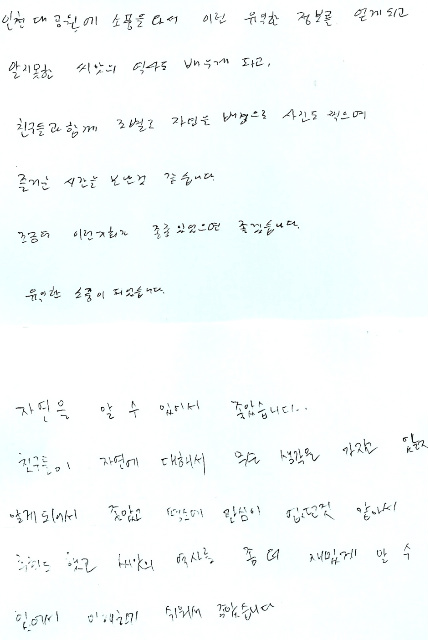 인천 대공원에 소풍을 와서 이런 유익한 정보를 얻게되고
알지못한 씨앗의 역사도 배우게 되고,
친구들과 함께 조별로 자연을 배경으로 사진도 찍으며
즐거운 시간을 보낸것 같습니다.
조금더 이런기회가 종종있었으면 좋겠습니다.
유익한 소풍이 되었습니다.
자연을 알 수 있어서 좋았습니다..
친구들이 자연에 대해서 무슨 생각을 가진
알게 되어서 좋았고 관심이 같아서
했고 씨앗의 역사를 좀 더 재밌게 알 수
있어서 이해하기 쉬워서 좋았습니다